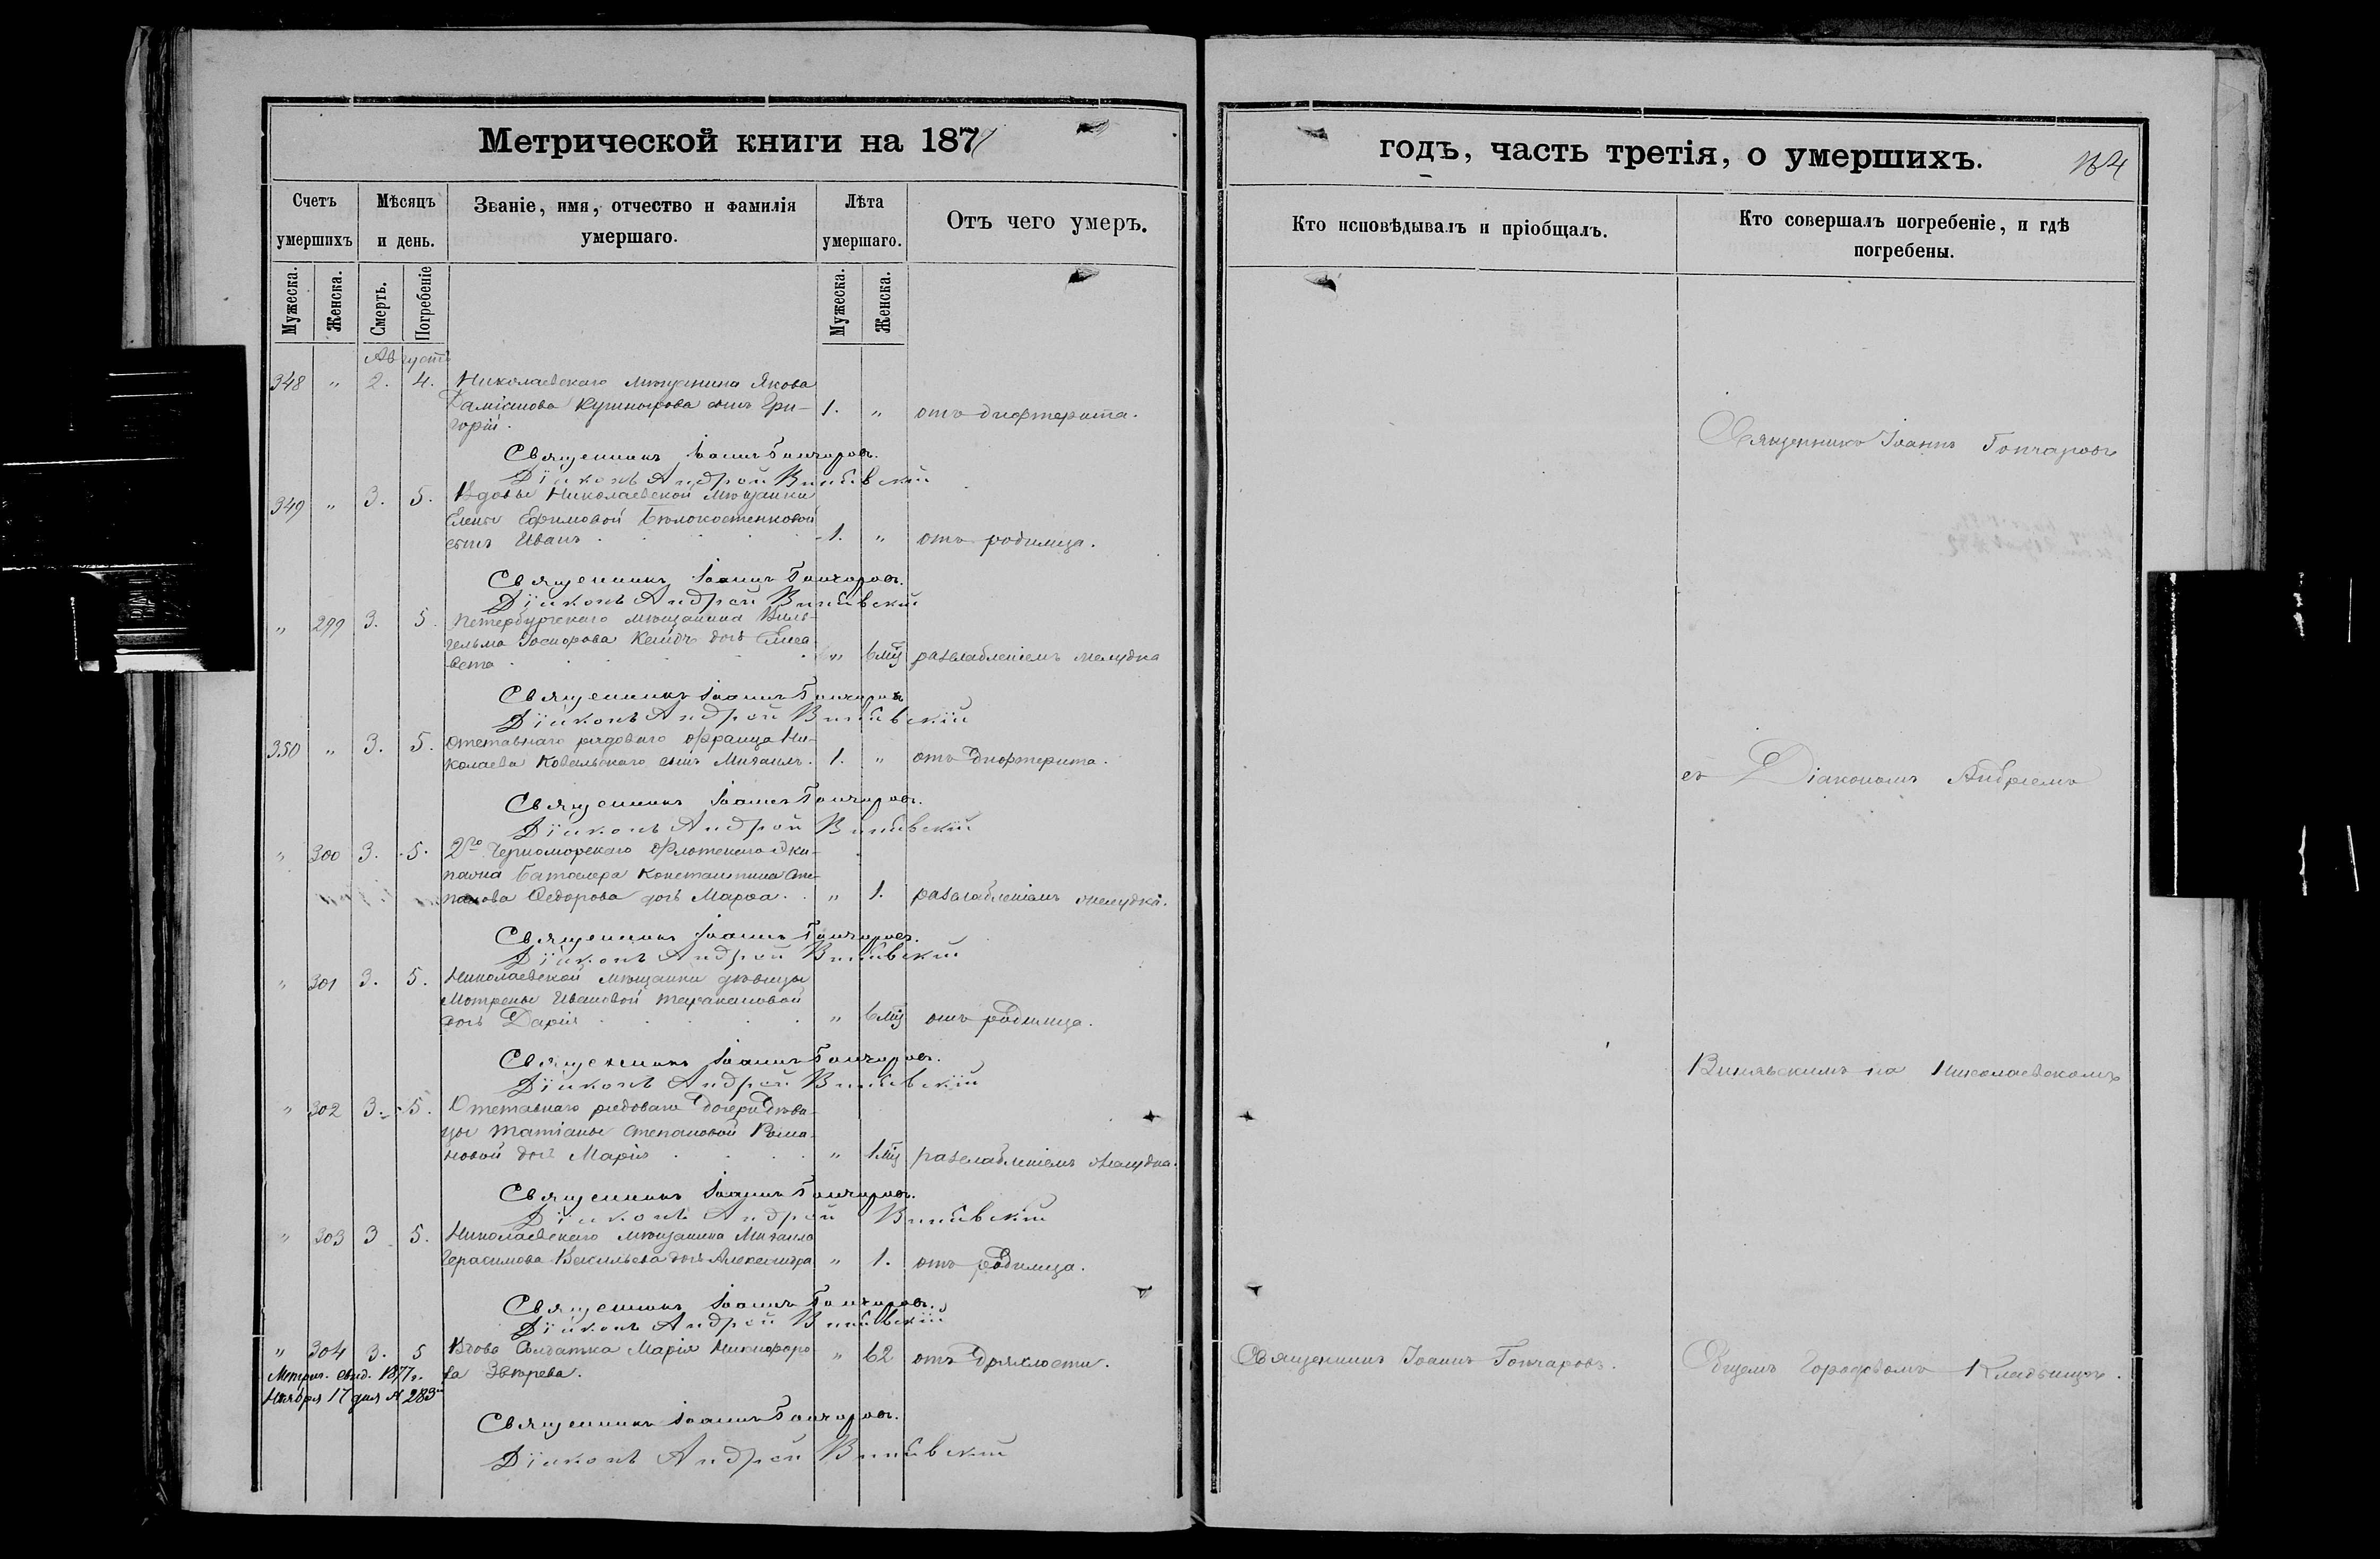 Метрической книги на 1877
Счетъ умершихъ
Мѣсяцъ и день.
Званіе, имя, отчество и фамилія умершаго.
Лѣта умершаго.
Отъ чего умеръ.
Мужеска.
Женска.
Смерть.
Погребеніе
Мужеска.
Женска.
Августъ
348 " 2. 4. Николаевскаго мѣщанина Якова
сынъ Гри- 1. " отъ дифтерита.
горій.
Священникъ Іоаннъ Гончаровъ.
Діаконъ Андрей
349 " 3. 5. Вдовы Николаевской мѣщанки
Елены Ефимовой Бѣлокостенковой
сынъ Иванъ 1. " отъ родимца.
Священникъ Іоаннъ Гончаровъ.
Діаконъ Андрей
" 299 3. 5. Петербургскаго мѣщанина Виль-
гельма дочь Елиса-
вета " 6 мц разслабленіемъ желудка
Священникъ Іоаннъ Гончаровъ
Діаконъ Андрей
350 " 3. 5. Отставнаго рядоваго Франца Ни-
колаева Ковальскаго сынъ Михаилъ. 1. " отъ дифтерита.
Священникъ Іоаннъ Гончаровъ.
Діаконъ Андрей
" 300 3. 5. 2го Черноморскаго Флотскаго Эки-
пажа Баталера Константина Сте-
панова Ѳедорова дочь Марѳа. " 1. разслабленіемъ желудка.
Священникъ Іоаннъ Гончаровъ.
Діаконъ Андрей
" 301 3. 5. Николаевской мѣщанки дѣвицы
Мотрены Ивановой Таракановой
дочь Дарія " 6 мц отъ родимца.
Священникъ Іоаннъ Гончаровъ.
Діаконъ Андрей
" 302 3. 5. Отставнаго рядоваго дочери дѣви-
цы Татіаны Степановой Рома-
новой дочь Марія " 1 мц разслабленіемъ желудка.
Священникъ Іоаннъ Гончаровъ.
Діаконъ Андрей
" 303 3 5. Николаевскаго мѣщанина Михаила
Герасимова Васильева дочь Александра " 1. отъ родимца.
Священникъ Іоаннъ Гончаровъ.
Діаконъ Андрей
" 304 3. 5 Вдова Солдатка Марія Никифоро-
ва Звѣрева. " 62 отъ дряхлости.
Метрич. свид. 1877 г.
Ноября 17 дня № 283
Священникъ Іоаннъ Гончаровъ.
Діаконъ Андрей
годъ, часть третія, о умершихъ.
164
Кто исповѣдывалъ и пріобщалъ.
Кто совершалъ погребеніе, и гдѣ погребены.
Священникъ Іоаннъ Гончаровъ
съ Діакономъ Андреемъ
на Николаевскомъ
Священникъ Іоаннъ Гончаровъ.
Общемъ Городовомъ Кладбищѣ.